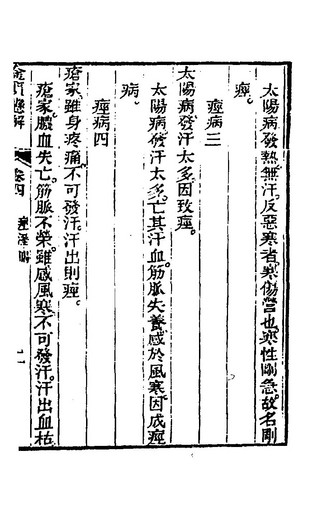 太陽病發熱無汗。反惡寒者。寒傷營也。寒性剛急。故名剛
痙。
痙病三
太陽病。發汗太多。因致痙。
太陽病。發汗太多。亡其汗血。筋脈失養。感於風寒。因成痙
病。
痙病四
瘡家雖身疼痛。不可發汗。汗出則痙。
瘡家。膿血失亡。筋脈不榮。雖感風寒。不可發汗。汗出血枯
金匱懸解
卷四
痙濕暍
二